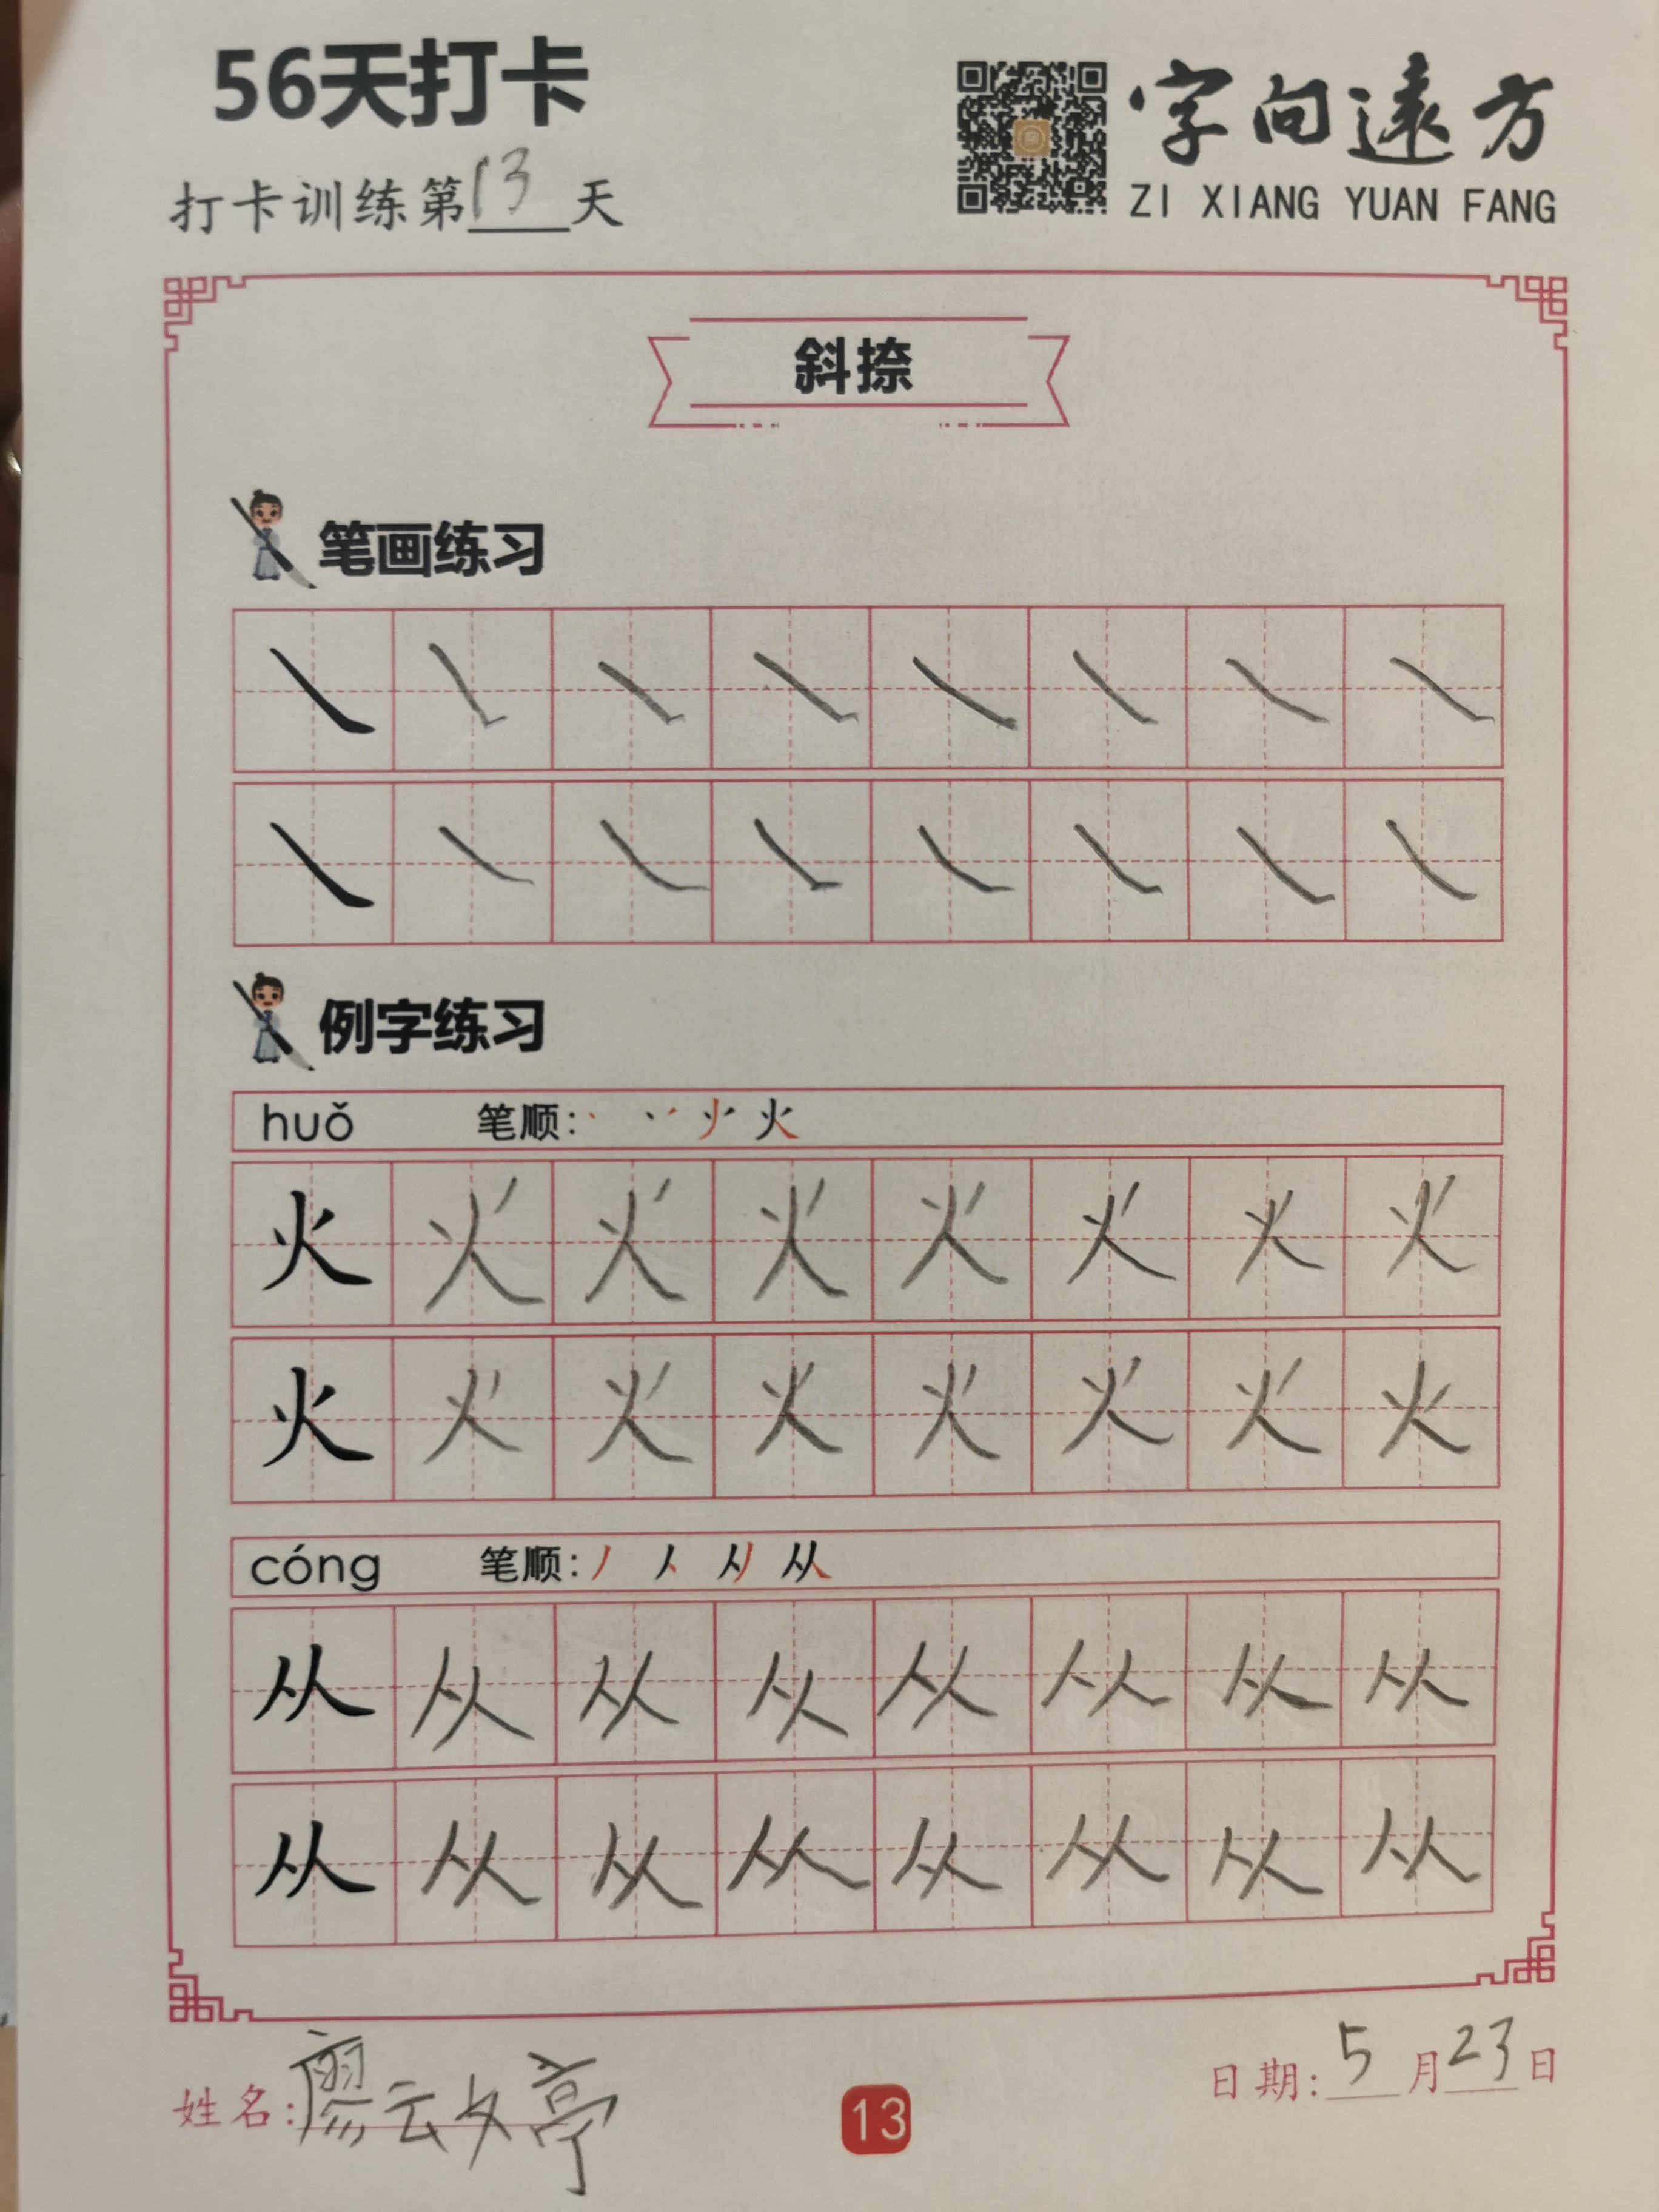 56天打卡
字向遠方
打卡训练第13天
ZI XIANG YUAN FANG
斜捺
笔画练习
例字练习
huǒ 笔顺: 火
火 火 火 火 火 火 火 火
火 火 火 火 火 火 火 火
cóng 笔顺: 丿 从
从 从 从 从 从 从 从 从
从 从 从 从 从 从 从 从
姓名: 廖云文亭
日期: 5月23日
13